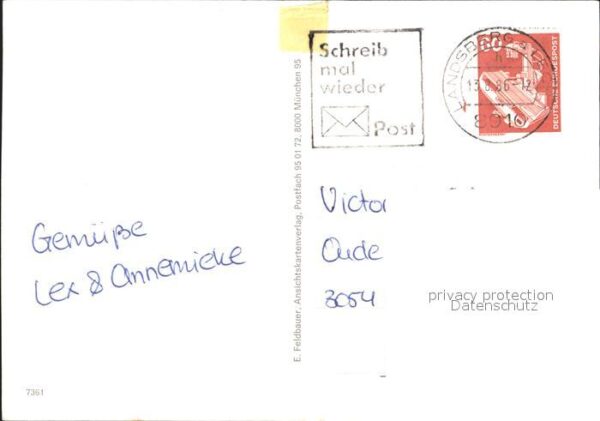 Schreib
mal
wieder
Post
60
DEUTSCHE BUNDESPOST
LANDSBERG a. LECH
h
13.8.86-12
8910
E. Feldbauer, Ansichtskartenverlag, Postfach 95 01 72, 8000 München 95
Gemüße
Lex & Annemieke
Victor
Oude
3054
privacy protection
Datenschutz
7361